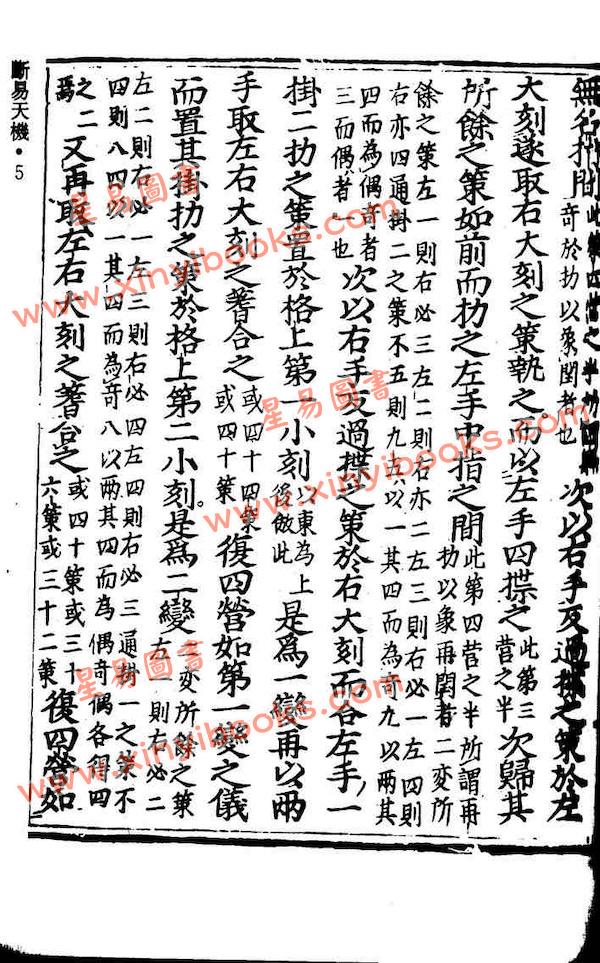 無名指間
此第四營之半
奇於扐以象閏者也
次以右手反過揲之策於左
大刻遂取右大刻之策執之。而以左手四揲之
此第三
營之半
次歸其
所餘之策如前而扐之左手中指之間
此第四營之半所謂再
扐以象再閏者二變所
餘之策左一則右必三左二則右亦二左三則右必一左四則
右亦四通掛二之策不五則九五以一其四而為奇九以兩其
四而為偶奇者
三而偶者一也
次以右手反過揲之策於右大刻而合左手一
掛二扐之策置於格上第一小刻
以東為上
後倣此
是爲一變再以兩
手取左右大刻之蓍合之
或四十四策
或四十策
復四營如第一變之儀
而置其掛扐之策於格上第二小刻。是爲二變
二變所餘之策
左一則右必二
左二則右必一左三則右必四左四則右必三通掛一之策不
四則八四以一其四而為奇八以兩其四而為偶奇偶各得四
之二
焉
又再取左右大刻之蓍合之
或四十策或三十
六策或三十二策
復四營如
斷易天機・5
星易圖書
www.xinyibooks.com
星易圖書
www.xinyibooks.com
星易圖書
www.xinyibooks.com